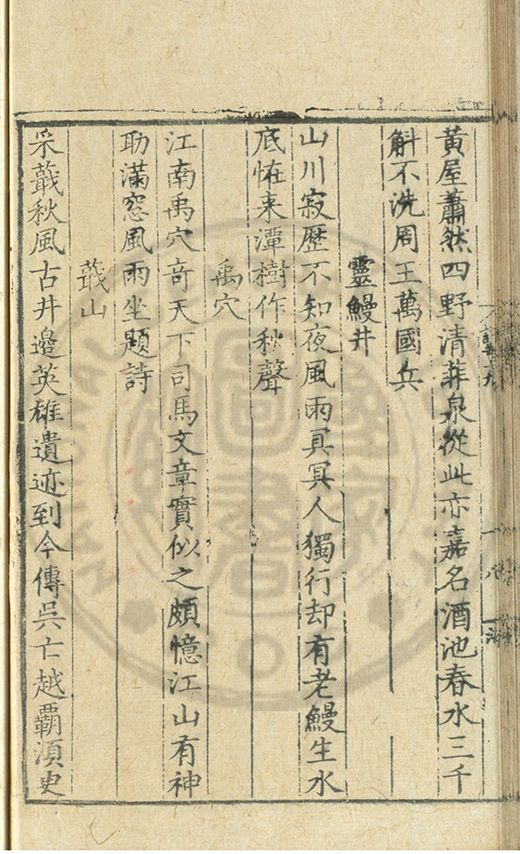 黃屋蕭然四野清菲泉從此亦嘉名酒池春水三千
斛不洗周王萬國兵
靈鰻井
山川寂歷不知夜風雨冥冥人獨行却有老鰻生水
底恠来潭樹作秋聲
禹穴
江南禹穴竒天下司馬文章實似之頗憶江山有神
助滿窓風雨坐題詩
蕺山
采蕺秋風古井邊英雄遺迹到今傳吳亡越霸湏史